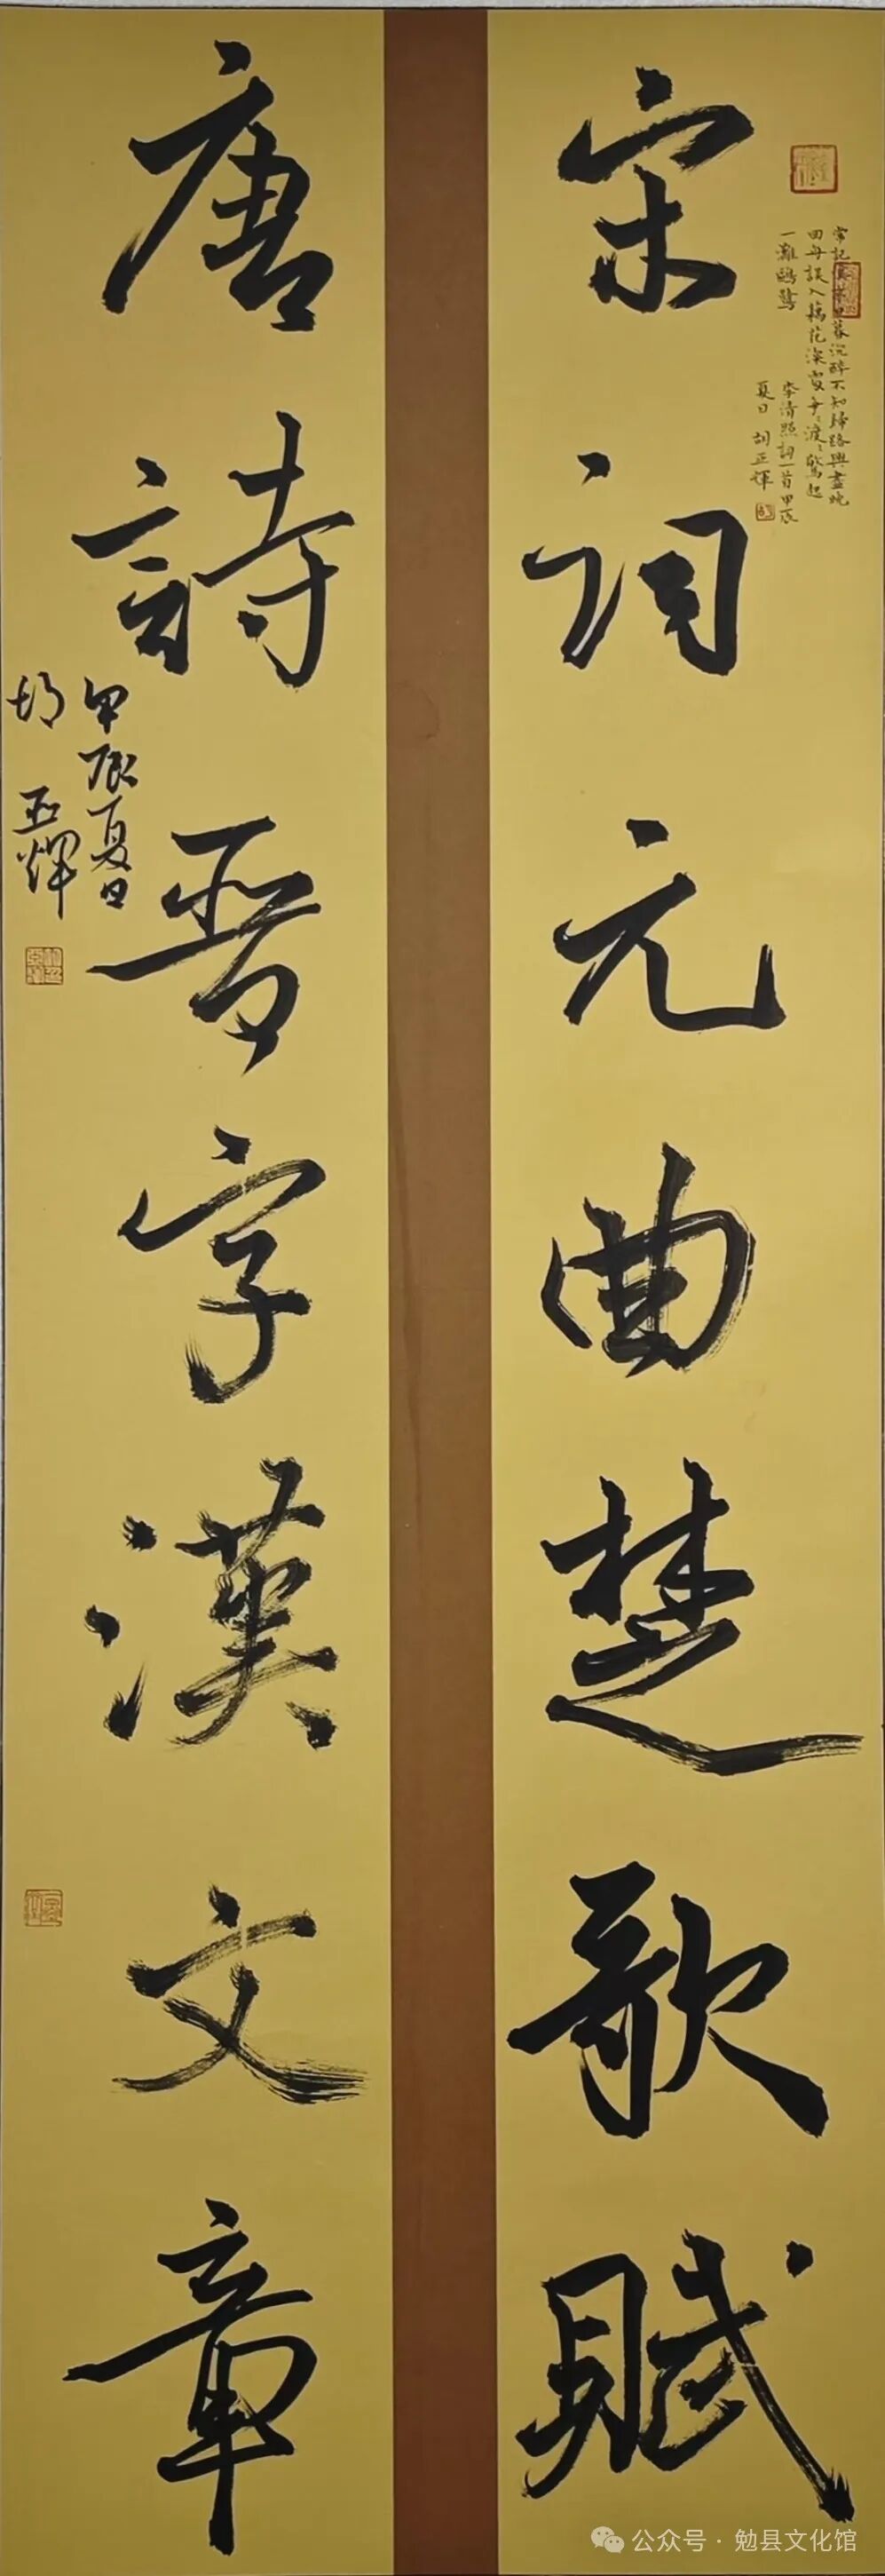 宋词元曲楚歌赋
常記溪亭日暮沉醉不知歸路興盡晚
回舟誤入藕花深處争渡争渡驚起
一灘鷗鷺
李清照詞一首甲辰
夏日 胡正輝
唐詩晋字漢文章
甲辰夏日
胡正輝
公众号·勉县文化馆